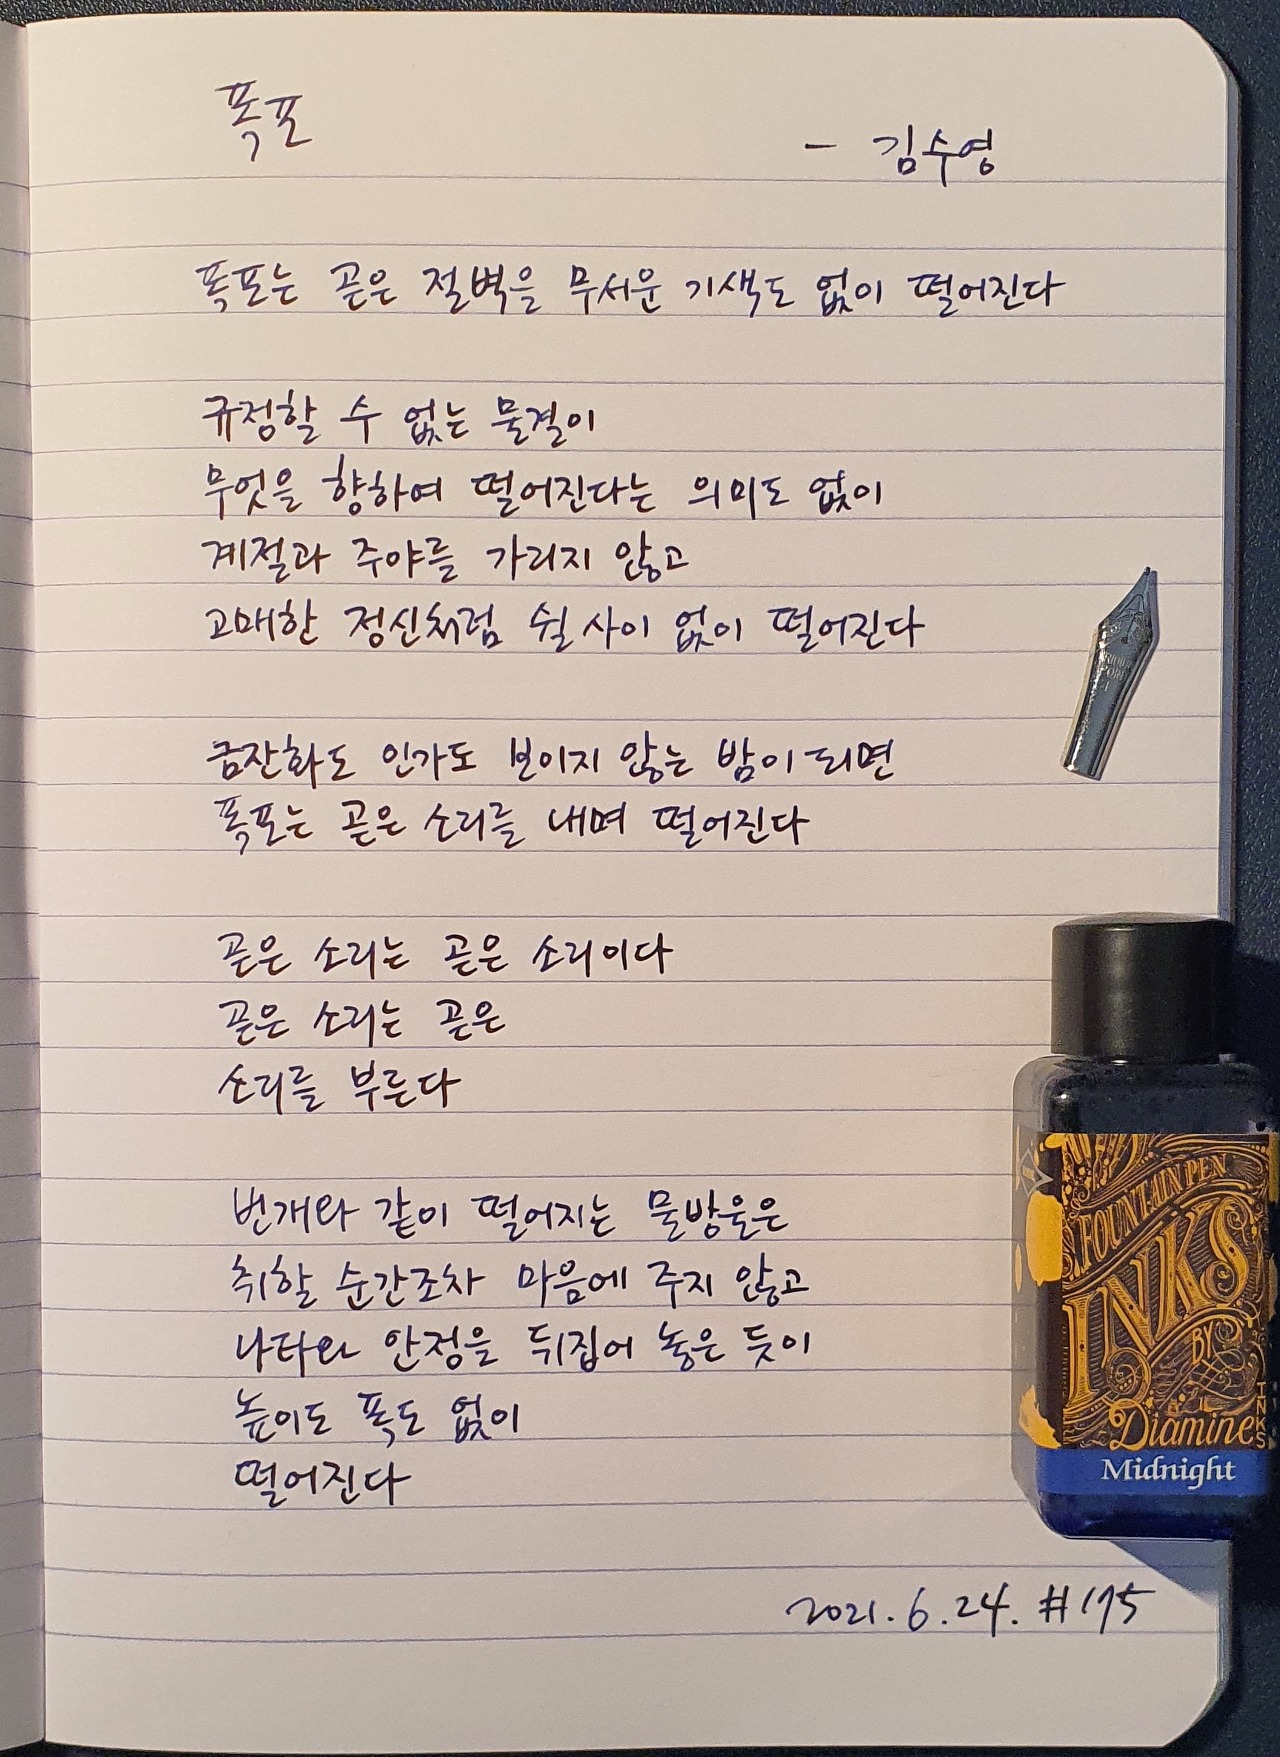 폭포
- 김수영
폭포는 곧은 절벽을 무서운 기색도 없이 떨어진다
규정할 수 없는 물결이
무엇을 향하여 떨어진다는 의미도 없이
계절과 주야를 가리지 않고
고매한 정신처럼 쉴 사이 없이 떨어진다
금잔화도 인가도 보이지 않는 밤이 되면
폭포는 곧은 소리를 내며 떨어진다
곧은 소리는 곧은 소리이다
곧은 소리는 곧은
소리를 부른다
번개와 같이 떨어지는 물방울은
취할 순간조차 마음에 주지 않고
나타와 안정을 뒤집어 놓은 듯이
높이도 폭도 없이
떨어진다
2021.6.24. #175
FOUNTAIN PEN
INKS
BY
Diamine
Midnight